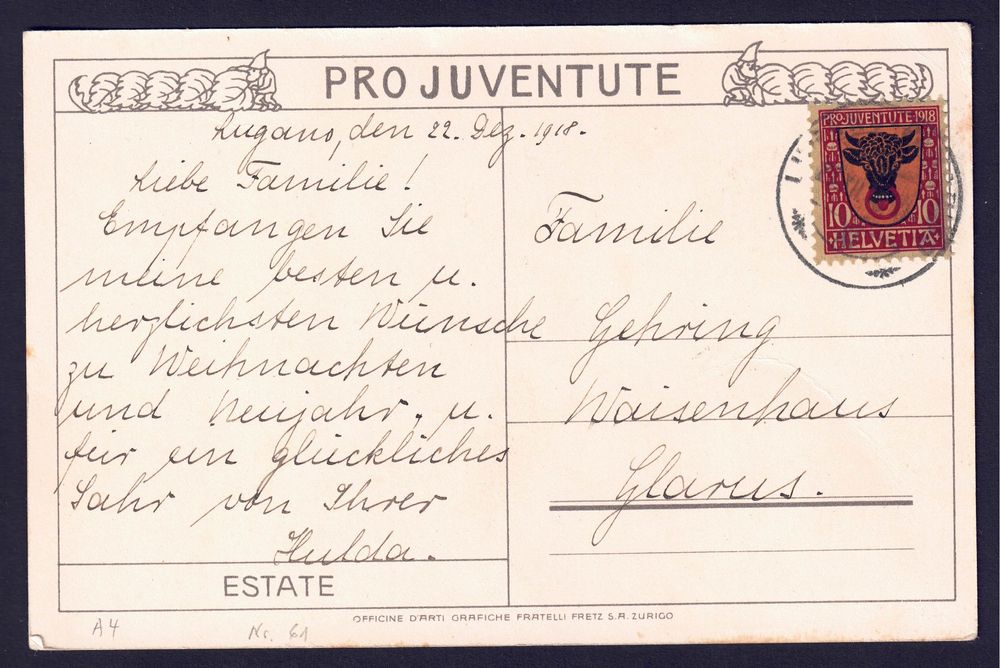 PRO JUVENTUTE
Lugano, den 22. Dez. 1918.
Liebe Familie!
Empfangen Sie
meine besten u.
herzlichsten Wünsche
zu Weihnachten
und Neujahr, u.
für ein glückliches
Jahr von Ihrer
Hulda.
ESTATE
PRO JUVENTUTE·1918
10 10
HELVETIA
Familie
Gehring
Waisenhaus
Glarus.
OFFICINE D'ARTI GRAFICHE FRATELLI FRETZ S.A. ZURIGO
A4
Nr. 61